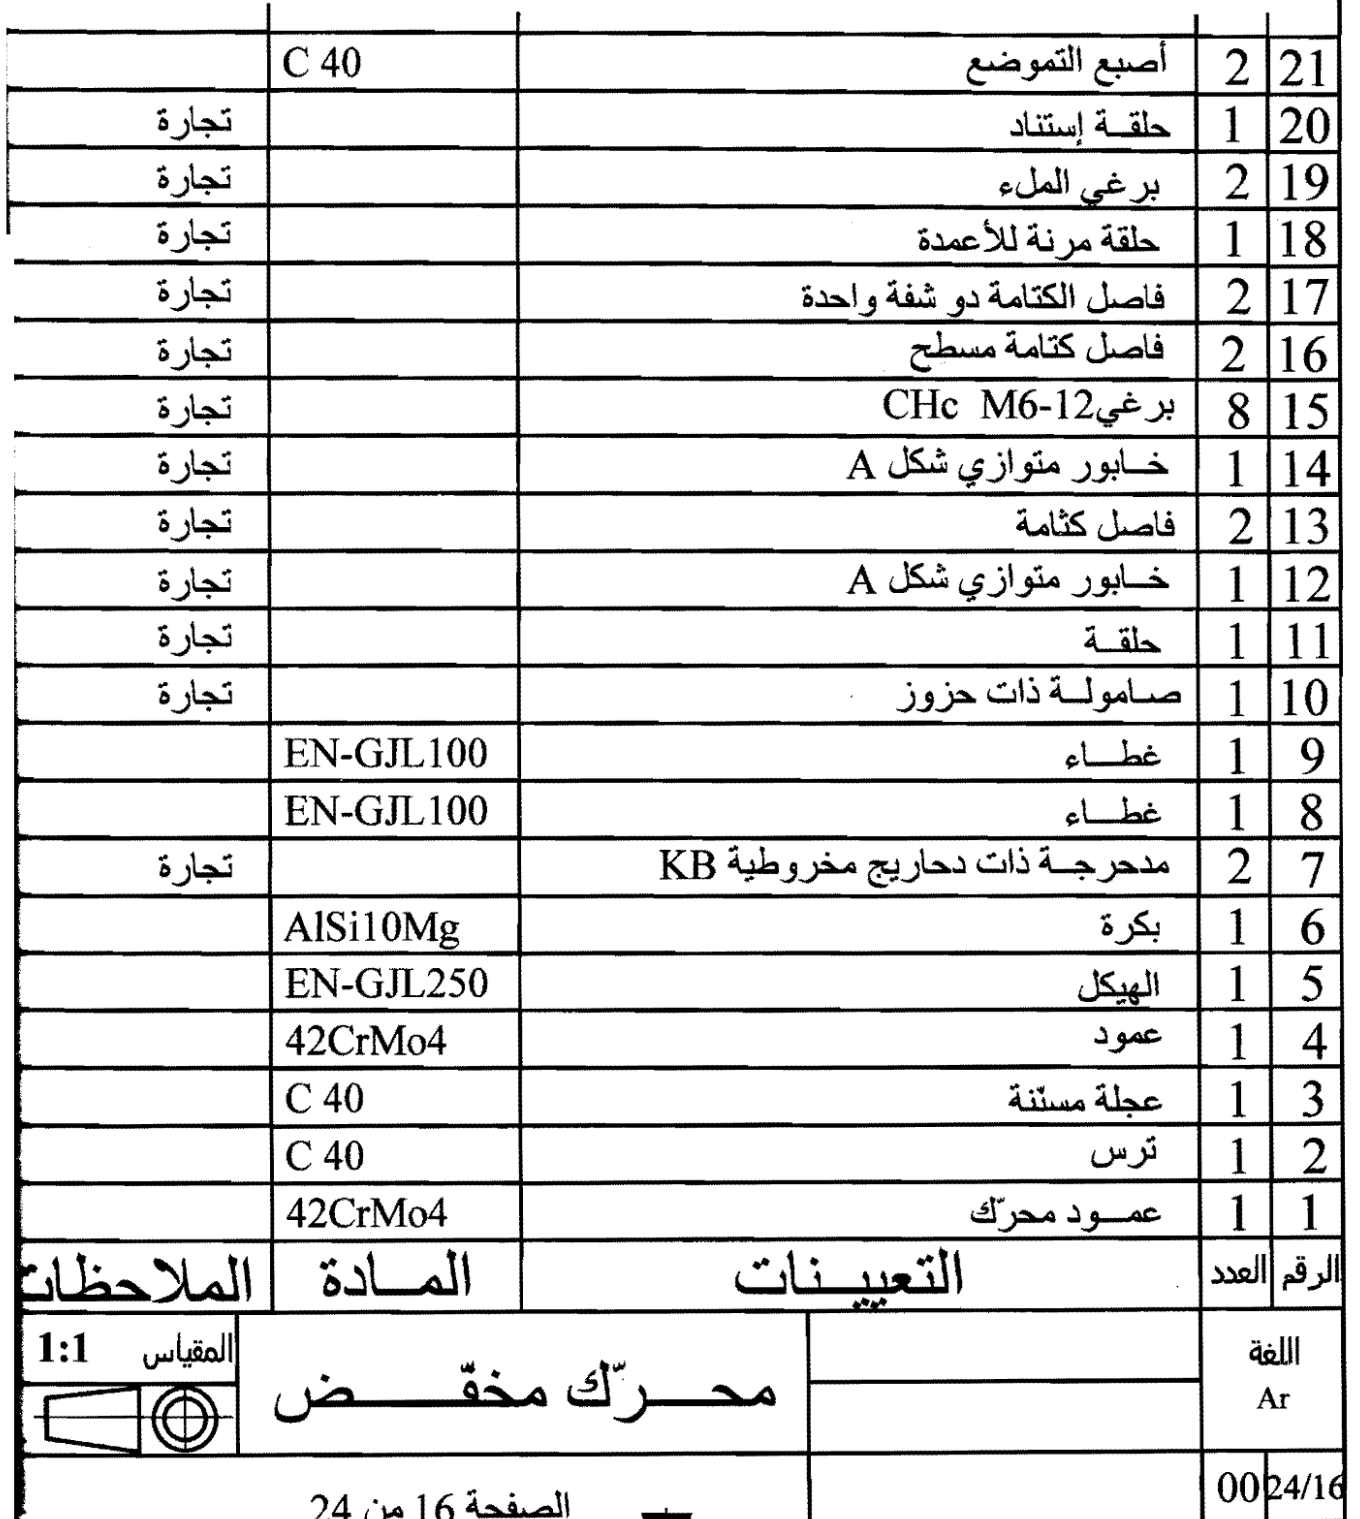 21 2 أصبع التموضع C 40
20 1 حلقة إستناد تجارة
19 2 برغي الملء تجارة
18 1 حلقة مرنة للأعمدة تجارة
17 2 فاصل الكتامة دو شفة واحدة تجارة
16 2 فاصل كتامة مسطح تجارة
15 8 برغي CHc M6-12 تجارة
14 1 خابور متوازي شكل A تجارة
13 2 فاصل كثامة تجارة
12 1 خابور متوازي شكل A تجارة
11 1 حلقة تجارة
10 1 صامولة ذات حزوز تجارة
9 1 غطاء EN-GJL100
8 1 غطاء EN-GJL100
7 2 مدحرجة ذات دحاريج مخروطية KB تجارة
6 1 بكرة AlSi10Mg
5 1 الهيكل EN-GJL250
4 1 عمود 42CrMo4
3 1 عجلة مسنّنة C 40
2 1 ترس C 40
1 1 عمود محرّك 42CrMo4
الرقم العدد التعيينات المادة الملاحظات
اللغة
Ar
محرّك مخفّض
المقياس 1:1
24/16 00
الصفحة 16 من 24